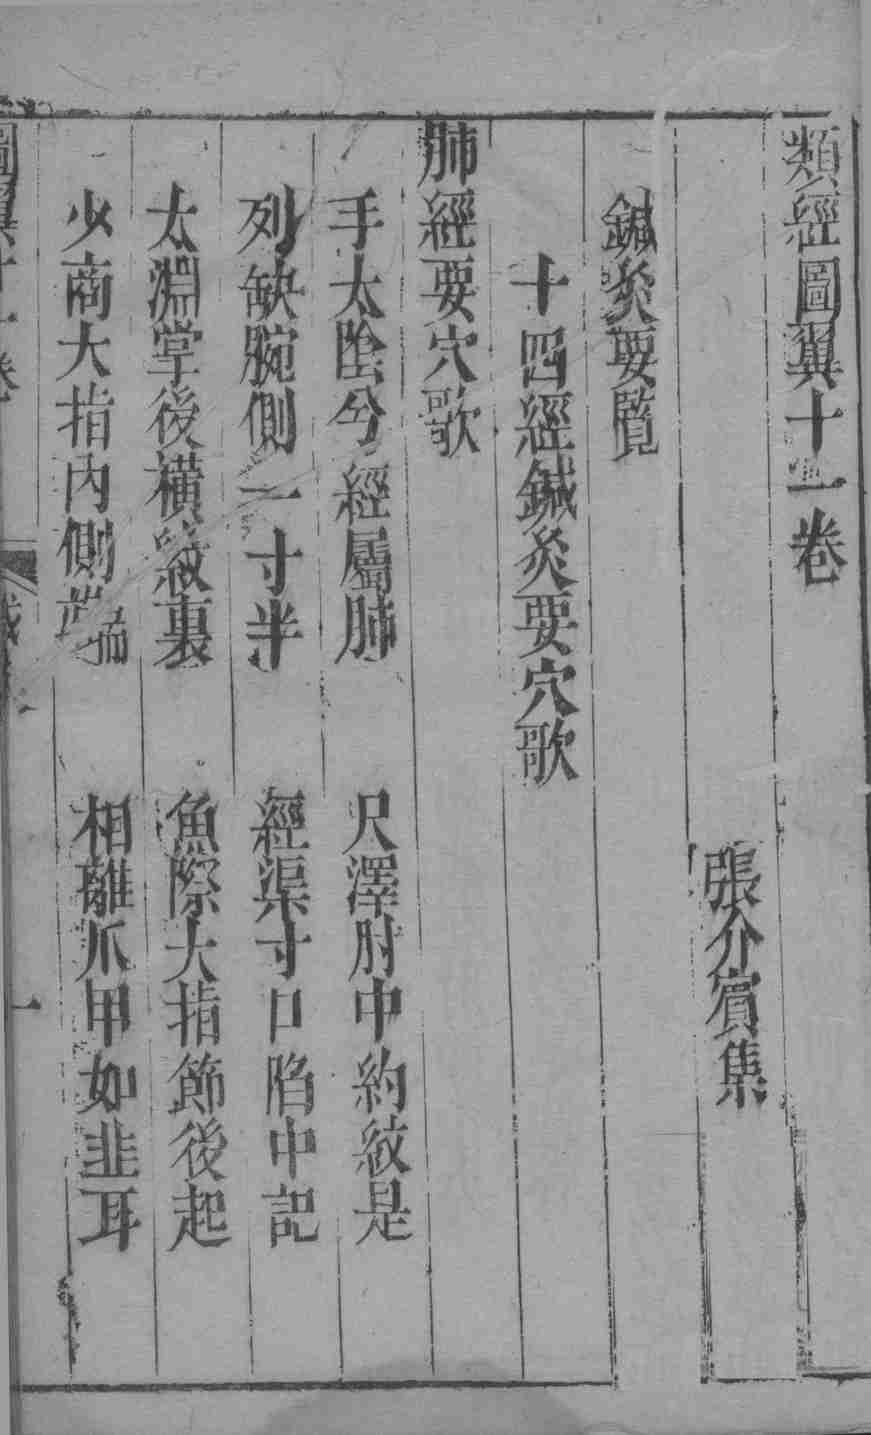 類經圖翼十一卷
張介賓集
鍼灸要覽
十四經鍼灸要穴歌
肺經要穴歌
手太陰兮經屬肺　尺澤肘中約紋是
列缺腕側一寸半　經渠寸口陷中記
太淵掌後橫紋裏　魚際大指節後起
少商大指內側端　相離爪甲如韭耳
圖翼十一卷　一